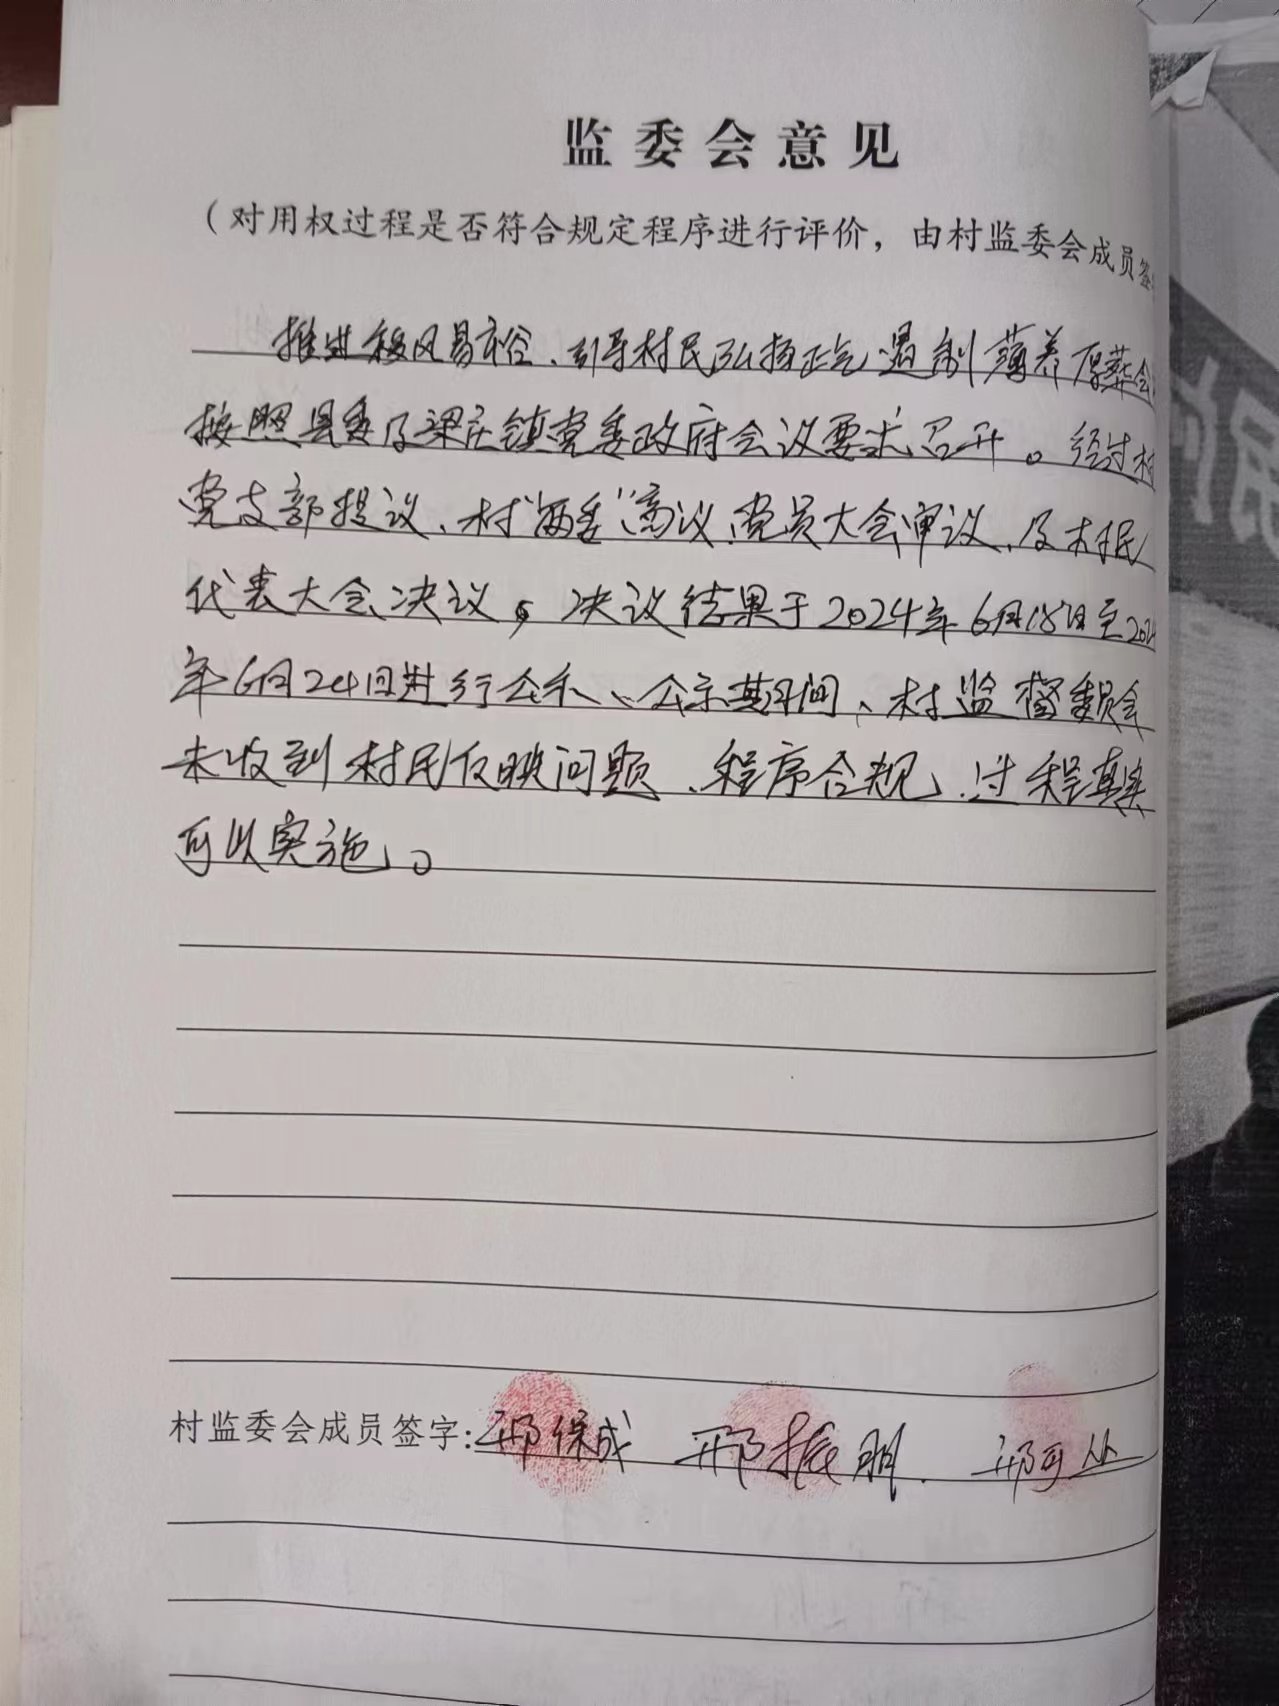 监委会意见
（对用权过程是否符合规定程序进行评价，由村监委会成员签
推进移风易俗、引导村民弘扬正气遏制薄养厚葬会
按照县委及梁庄镇党委政府会议要求召开。经过村
党支部提议、村“两委”商议、党员大会审议、及村民
代表大会决议，决议结果于2024年6月18日至202
年6月24日进行公示、公示期间、村监督委员会
未收到村民反映问题、程序合规、过程真实
可以实施。
村监委会成员签字：邢保成 邢振朋
民